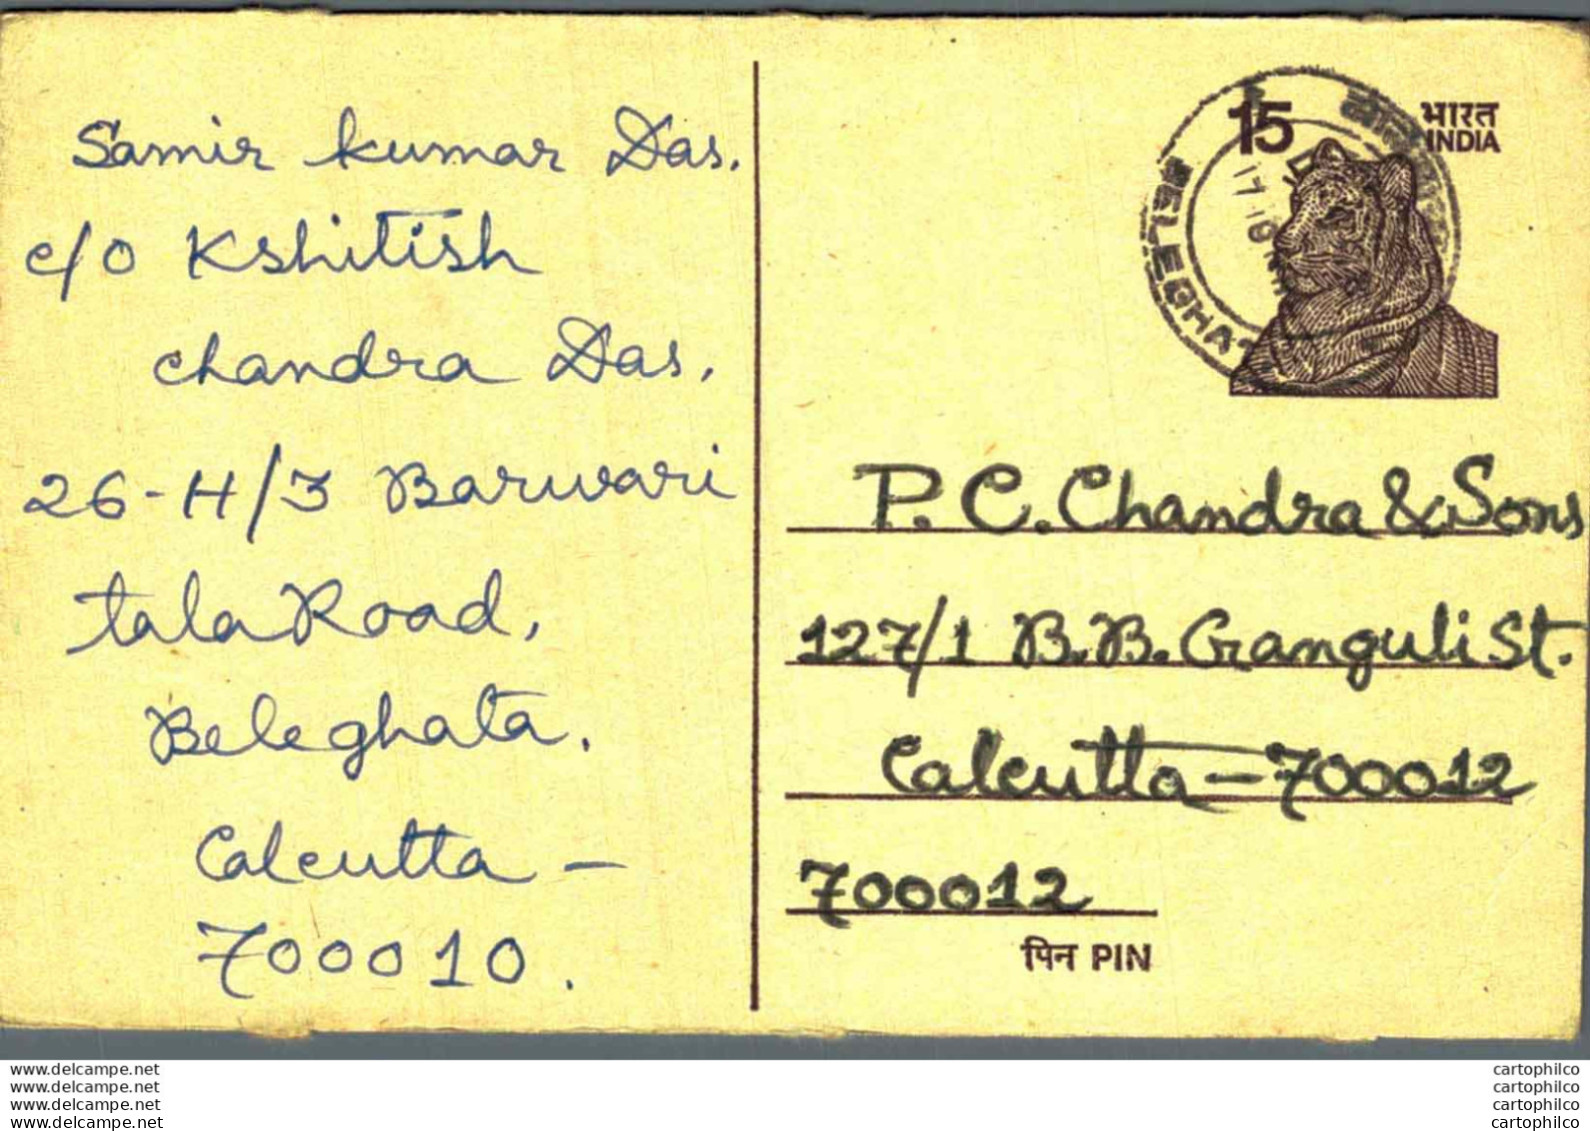 Samir kumar Das.
c/o Kshitish
chandra Das.
26-H/3 Barwari
tala Road,
Beleghata.
Calcutta -
700010.
15
भारत
INDIA
BELEGHA
P. C. Chandra & Sons
127/1 B.B. Ganguli St.
Calcutta - 700012
700012
पिन PIN
www.delcampe.net
www.delcampe.net
www.delcampe.net
www.delcampe.net
cartophilco
cartophilco
cartophilco
cartophilco